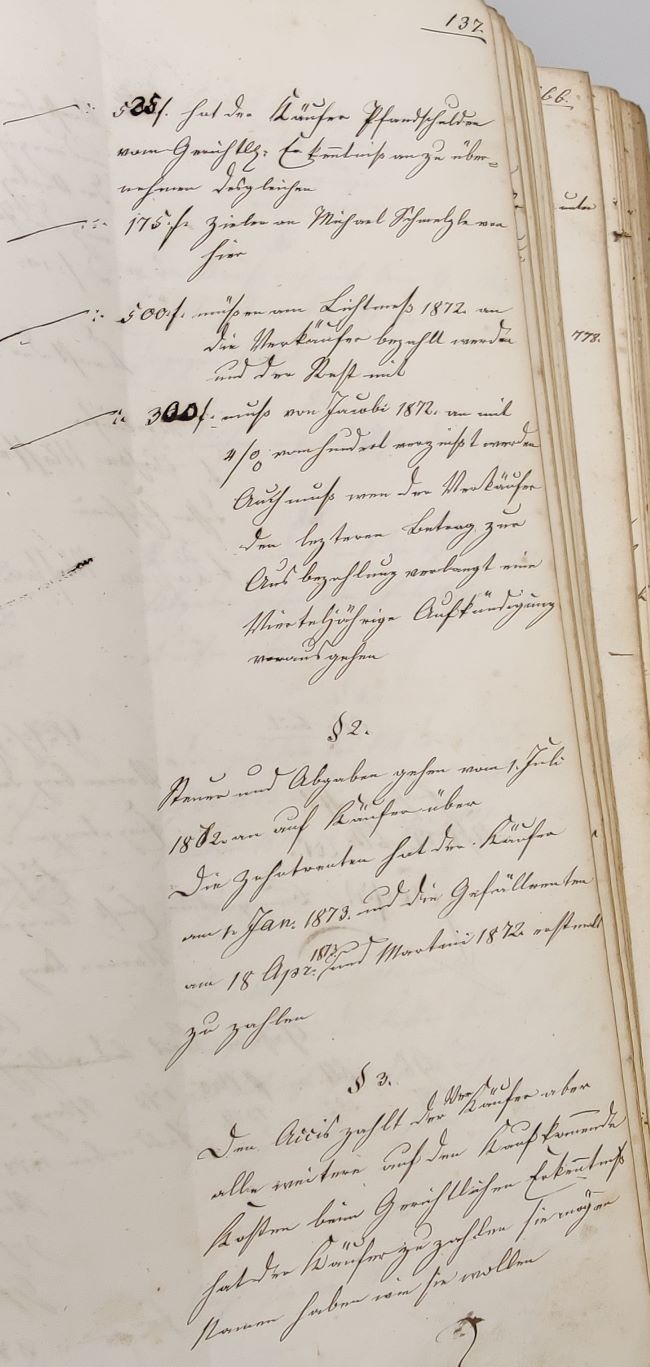 137.
525 f. hat der Käufer Pfandschulden
vom Gerichtlh: Erkenntniß an zu über=
nehmen desgleichen
175. f. Zieler an Michael Schmelzle von
hier
500 f. müßen am Lichtmeß 1872. an
die Verkäufer bezahlt werden
und der Rest mit
300 f. muß von Jacobi 1872. an mit
4 % vom hundert verzinßt werden
Auch muß wen der Verkäufer
den lezteren Betrag zur
Ausbezahlung verlangt eine
Vierteljährige Aufkündigung
vorausgehen
§ 2.
Steuer und Abgaben gehen vom 1. Juli
1872. an auf Käufer über
Die Zehntrenten hat der Käufer
am 1. Jan. 1873. und die Gefällrenten
am 18 Apr. 1873 und Martini 1872 erstmals
zu zahlen
§ 3.
Den Accis zahlt der Verkäufer aber
alle weitere auf den Kauf kommende
Kosten beim Gerichtlichen Erkenntniß
hat der Käufer zu zahlen sie mögen
Namen haben wie sie wollen
66.
unter
778.